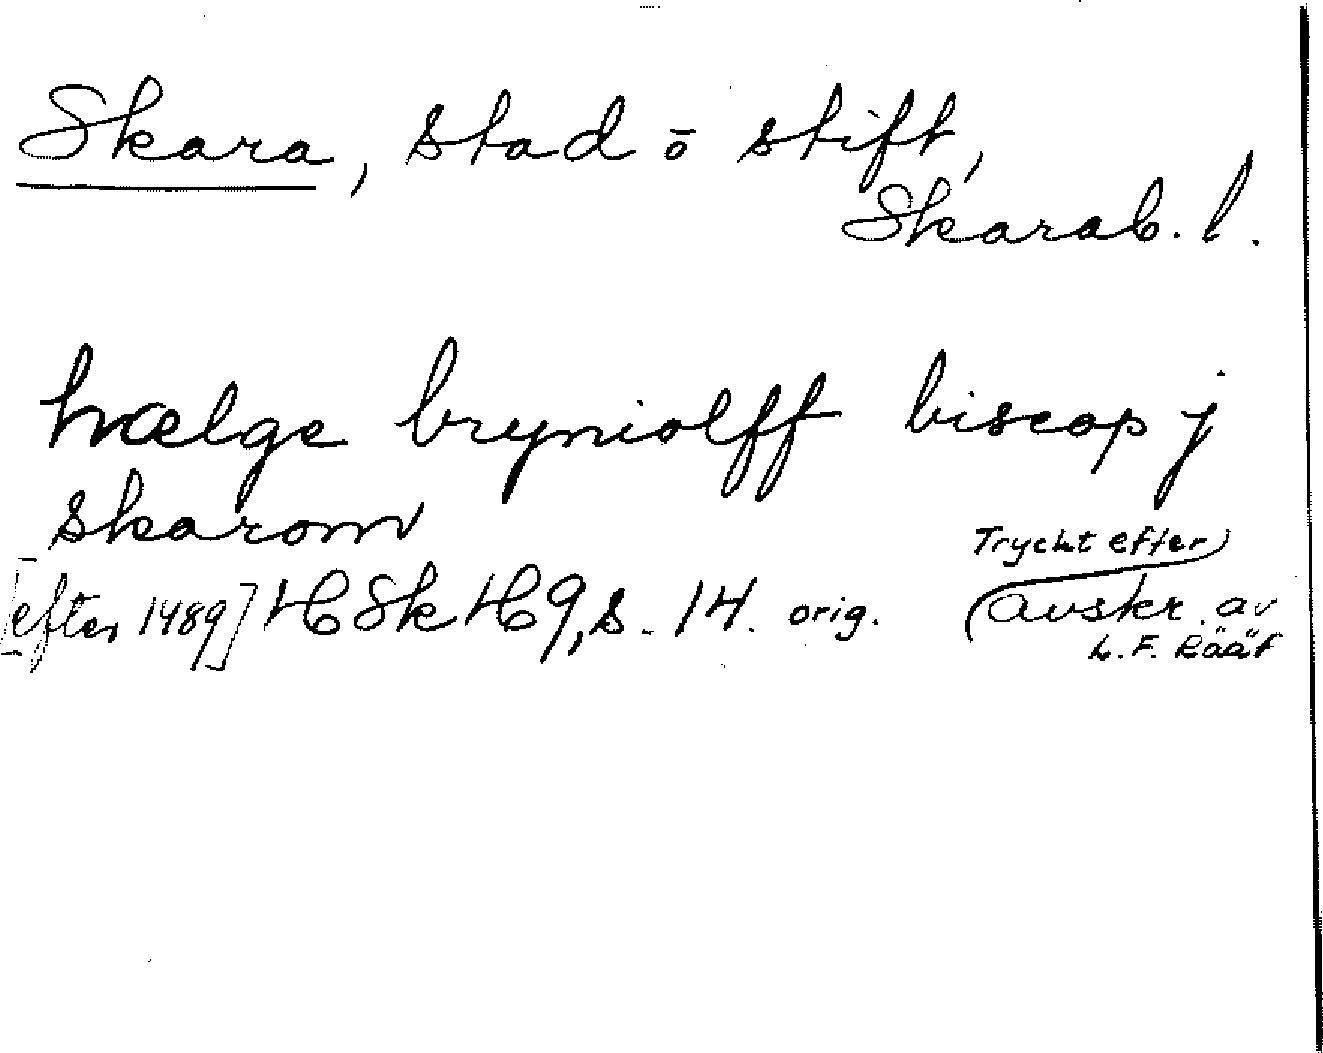 Skara, stad ō stift,
Skarab. l.
hælge bryniolff biscop j
skarom
[efter 1489] HSkH 9, s. 14. orig.
Tryckt efter
(avskr. av
L. F. Rääf